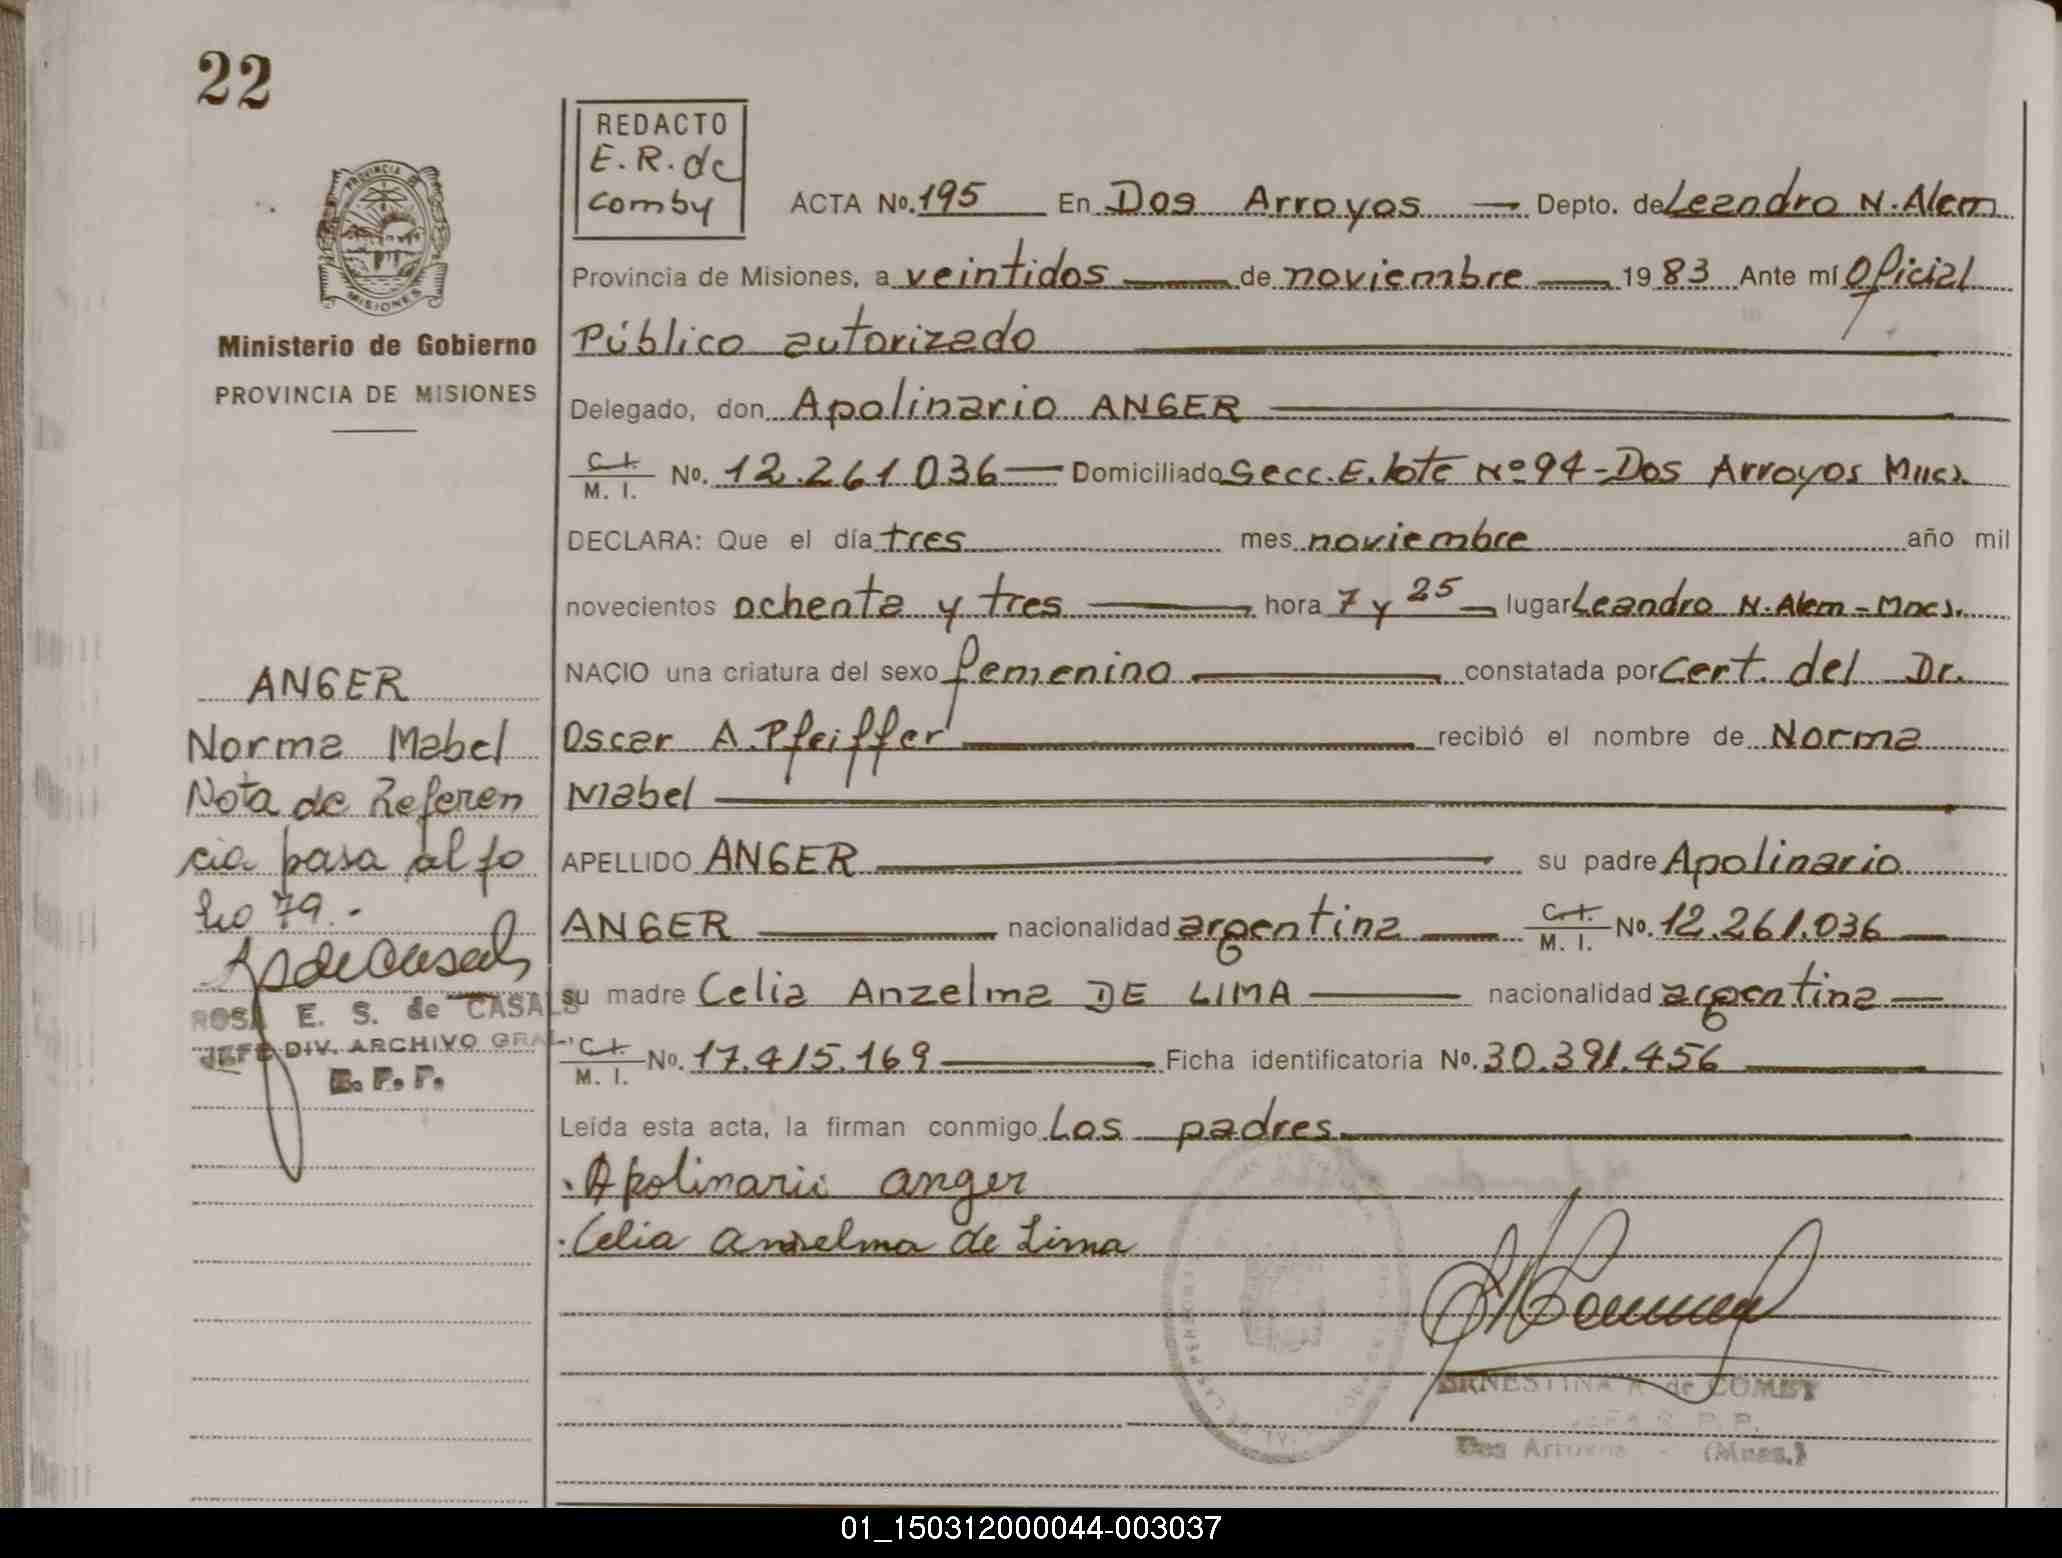 22
PROVINCIA DE
MISIONES
Ministerio de Gobierno
PROVINCIA DE MISIONES
REDACTO
E.R. de
Comby
ACTA No. 195 En Dos Arroyos Depto. de Leandro N. Alem
Provincia de Misiones, a veintidos de noviembre 1983 Ante mí Oficial
Público autorizado
Delegado, don Apolinario ANGER
C.I. M.I. No. 12.261.036 Domiciliado Secc. E. lote Nº 94 - Dos Arroyos Mnes.
DECLARA: Que el día tres mes noviembre año mil
novecientos ochenta y tres hora 7 y 25 lugar Leandro N. Alem - Mnes.
NACIO una criatura del sexo femenino constatada por Cert. del Dr.
Oscar A. Pfeiffer recibió el nombre de Norma
Mabel
APELLIDO ANGER su padre Apolinario
ANGER nacionalidad argentina C.I. M.I. No. 12.261.036
su madre Celia Anzelma DE LIMA nacionalidad argentina
C.I. M.I. No. 17.415.169 Ficha identificatoria No. 30.391.456
Leída esta acta, la firman conmigo Los padres
Apolinario anger
Celia Anselma de Lima
ANGER
Norma Mabel
Nota de Referen
cia pasa al fo
lio 79.-
ROSA E. S. de CASALS
JEFE DIV. ARCHIVO GRAL.
R. P. P.
ERNESTINA R. de COMBY
JEFA R. P. P.
Dos Arroyos - (Mnes.)
01_150312000044-003037